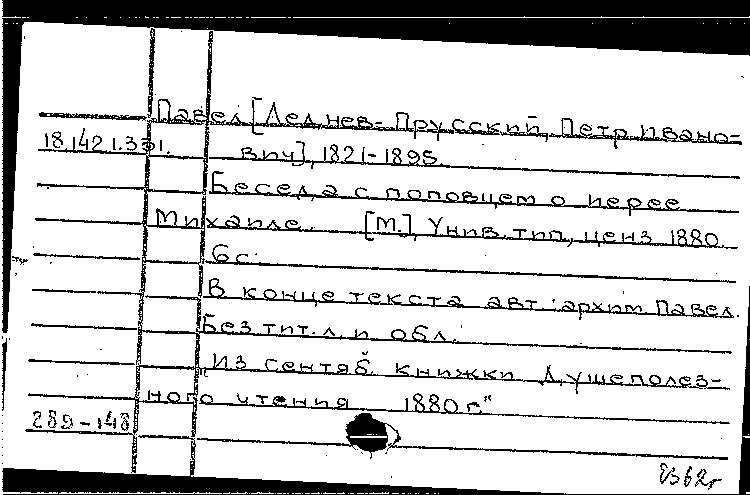 Павел [Леднев-Прусский, Петр Ивано-
18.142.1.331. вич], 1821-1895.
Беседа с поповцем о иерее
Михаиле. [М.], Унив. тип., ценз. 1880.
6 с.
В конце текста авт.: архим. Павел.
Без тит. л. и обл.
"Из сентяб. книжки Душеполез-
ного чтения 1880 г."
289-148